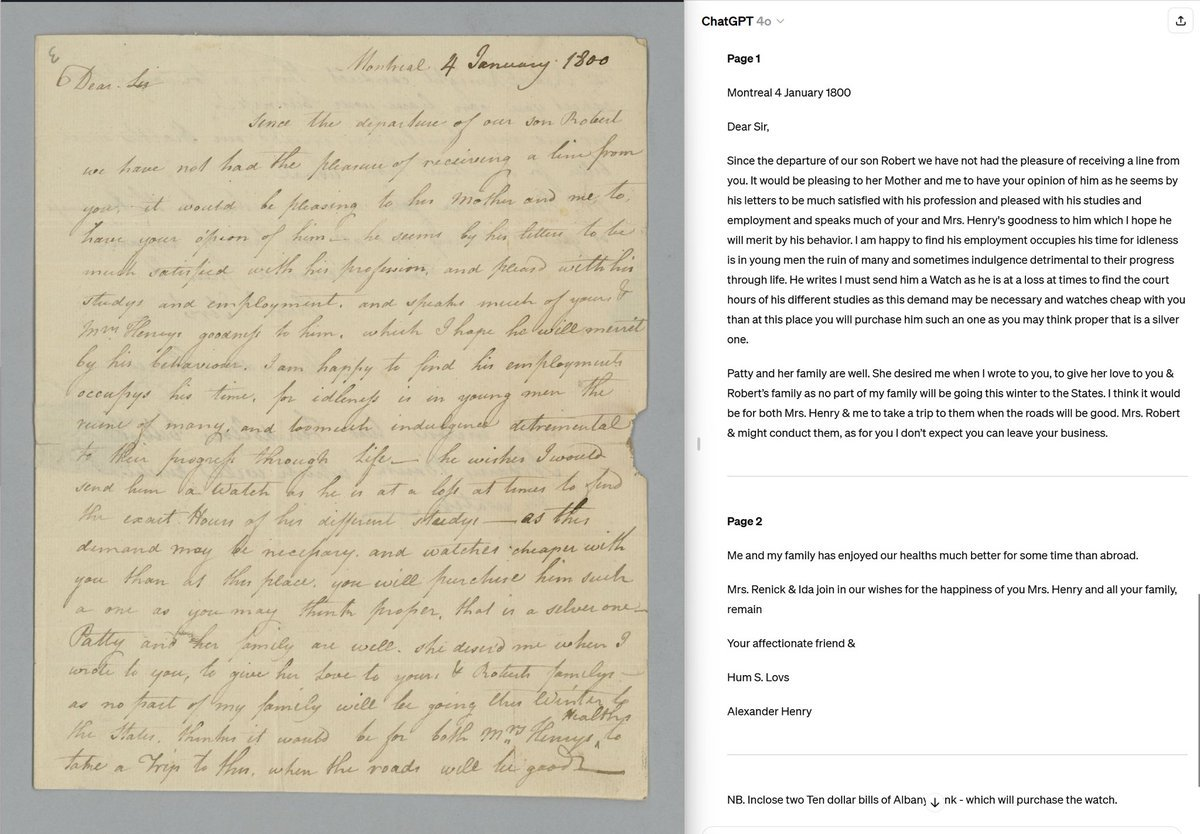 Montreal 4 January 1800
Dear Sir
Since the departure of our son Robert
we have not had the pleasure of receiving a line from
you, it would be pleasing to his Mother and me, to
have your opion of him — he seems by his letters to be
much satisfied with his profession, and pleasd with his
studys and employment, and speaks much of yours &
Mrs. Henrys goodness to him, which I hope he will merrit
by his behaviour. I am happy to find his employments
occupys his time, for idleness is in young men the
ruine of many, and toomuch indulgence detremental
to their progress through Life — he wishes I would
send him a Watch as he is at a loss at times to find
the exact Hours of his different studys — as this
demand may be necessary. and watches cheaper with
you than at this place, you will purchise him such
a one as you may think proper, that is a silver one —
Patty and her family are well. she desired me when I
wrote to you, to give her Love to yours & Roberts familys —
as no part of my family will be going this Winter to
the States, thinks it would be for both Mrs. Henrys Healths to
take a Trip to this, when the roads will be good —
ChatGPT 4o
Page 1
Montreal 4 January 1800
Dear Sir,
Since the departure of our son Robert we have not had the pleasure of receiving a line from
you. It would be pleasing to her Mother and me to have your opinion of him as he seems by
his letters to be much satisfied with his profession and pleased with his studies and
employment and speaks much of your and Mrs. Henry's goodness to him which I hope he
will merit by his behavior. I am happy to find his employment occupies his time for idleness
is in young men the ruin of many and sometimes indulgence detrimental to their progress
through life. He writes I must send him a Watch as he is at a loss at times to find the court
hours of his different studies as this demand may be necessary and watches cheap with you
than at this place you will purchase him such an one as you may think proper that is a silver
one.
Patty and her family are well. She desired me when I wrote to you, to give her love to you &
Robert's family as no part of my family will be going this winter to the States. I think it would
be for both Mrs. Henry & me to take a trip to them when the roads will be good. Mrs. Robert
& might conduct them, as for you I don't expect you can leave your business.
Page 2
Me and my family has enjoyed our healths much better for some time than abroad.
Mrs. Renick & Ida join in our wishes for the happiness of you Mrs. Henry and all your family,
remain
Your affectionate friend &
Hum S. Lovs
Alexander Henry
NB. Inclose two Ten dollar bills of Albany nk - which will purchase the watch.